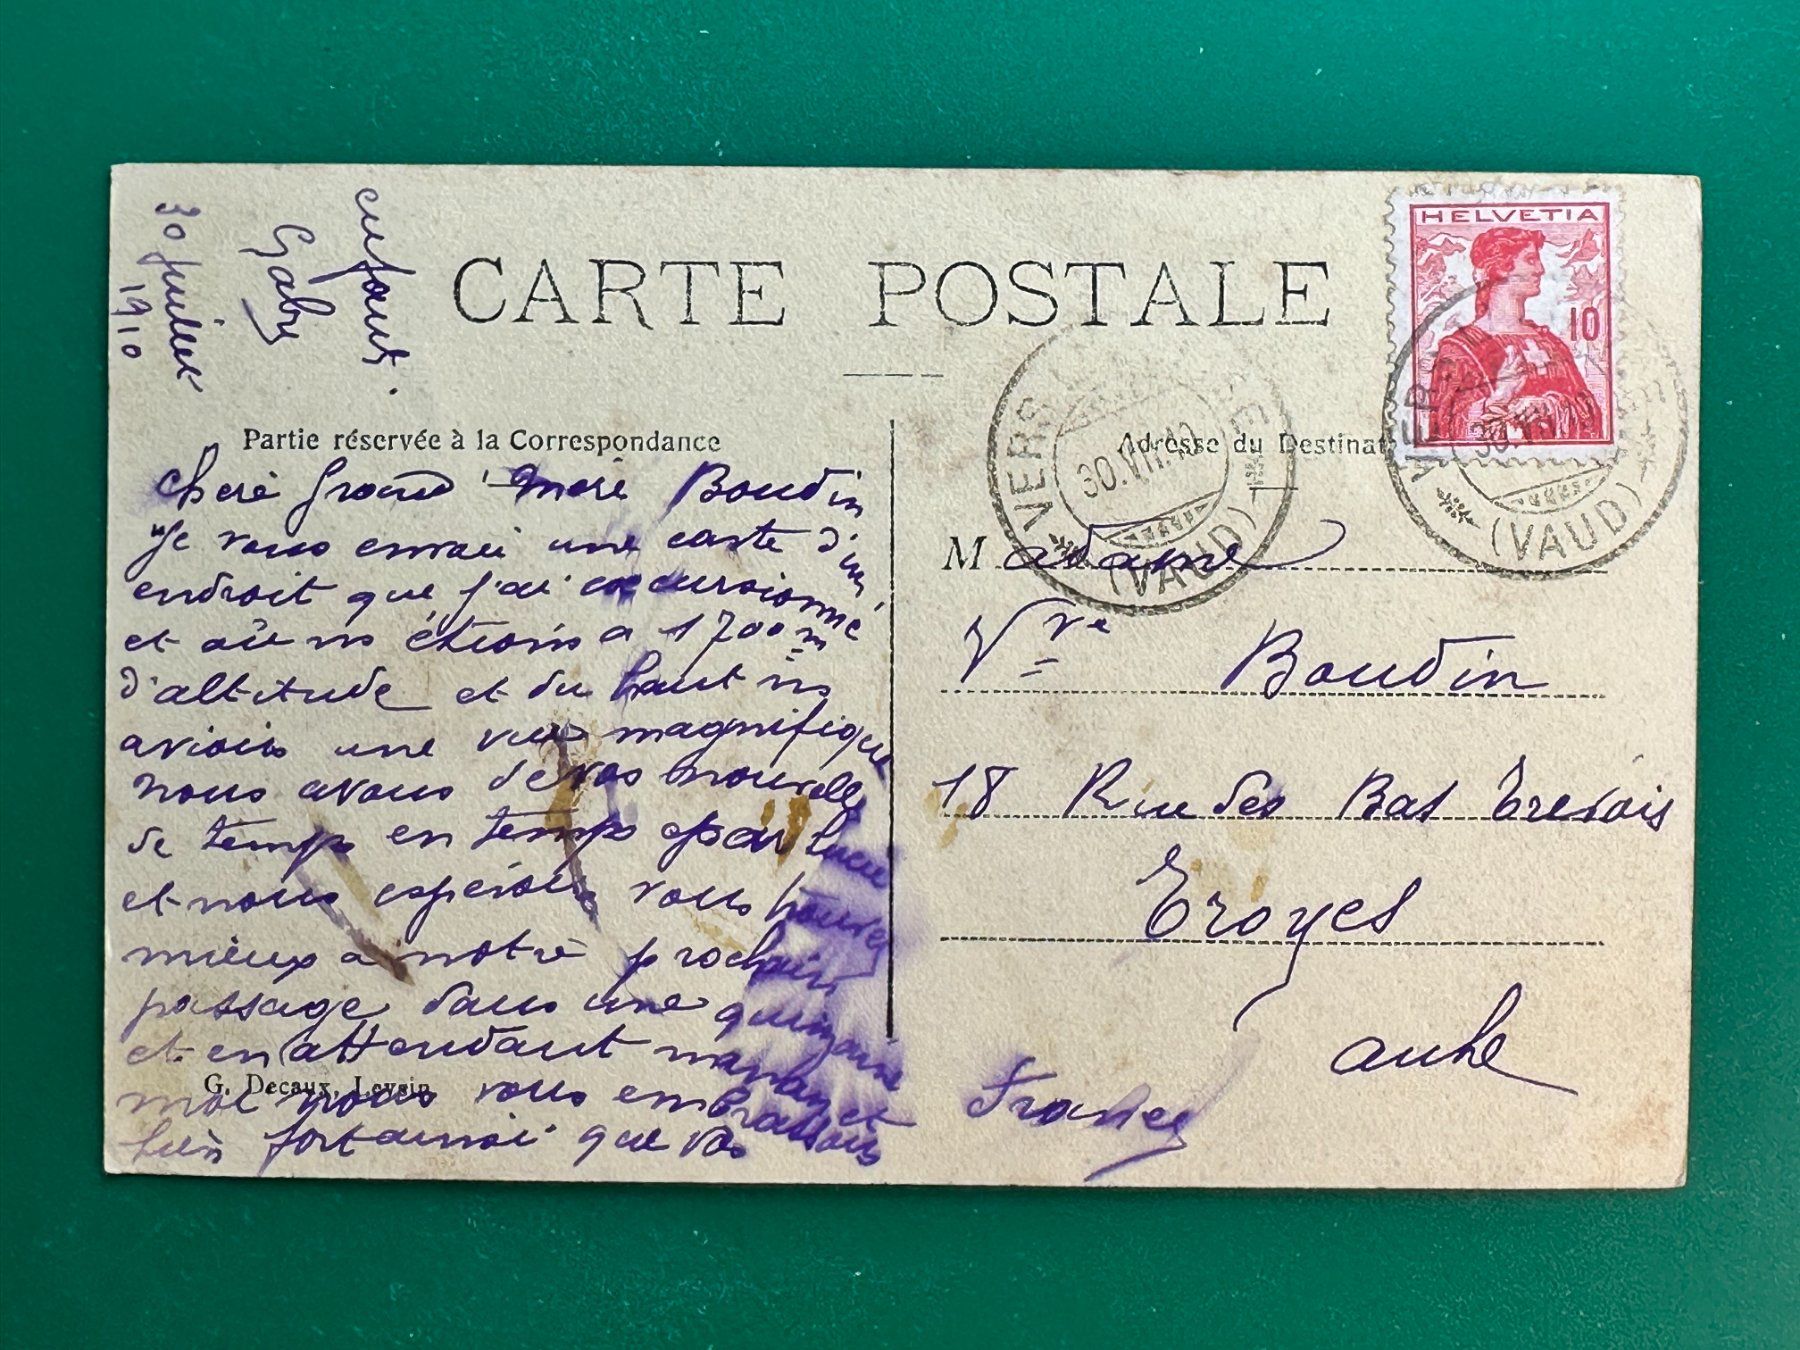 CARTE POSTALE
Partie réservée à la Correspondance
Chere Grand mere Boudin
Je vous envoie une carte d'un
endroit que j'ai excursionné
et où ns étions a 1700 m
d'altitude et du haut ns
avions une vue magnifique
nous avons de vos nouvelle
de temps en temps par Lucie
et nous esperons vous
mieux a notre prochain
passage dans une quinzaine
et en attendant maman et
moi nous vous embrassons
bien fort ainsi que vos
enfants.
Gaby
30 Juillet
1910
G. Decaux, Levsin
Adresse du Destinat
Madame
Vve Boudin
18 Rue des Bas Trevois
Troyes
Aube
France
HELVETIA
10
30.VII.10
(VAUD)
30.VII.10
(VAUD)